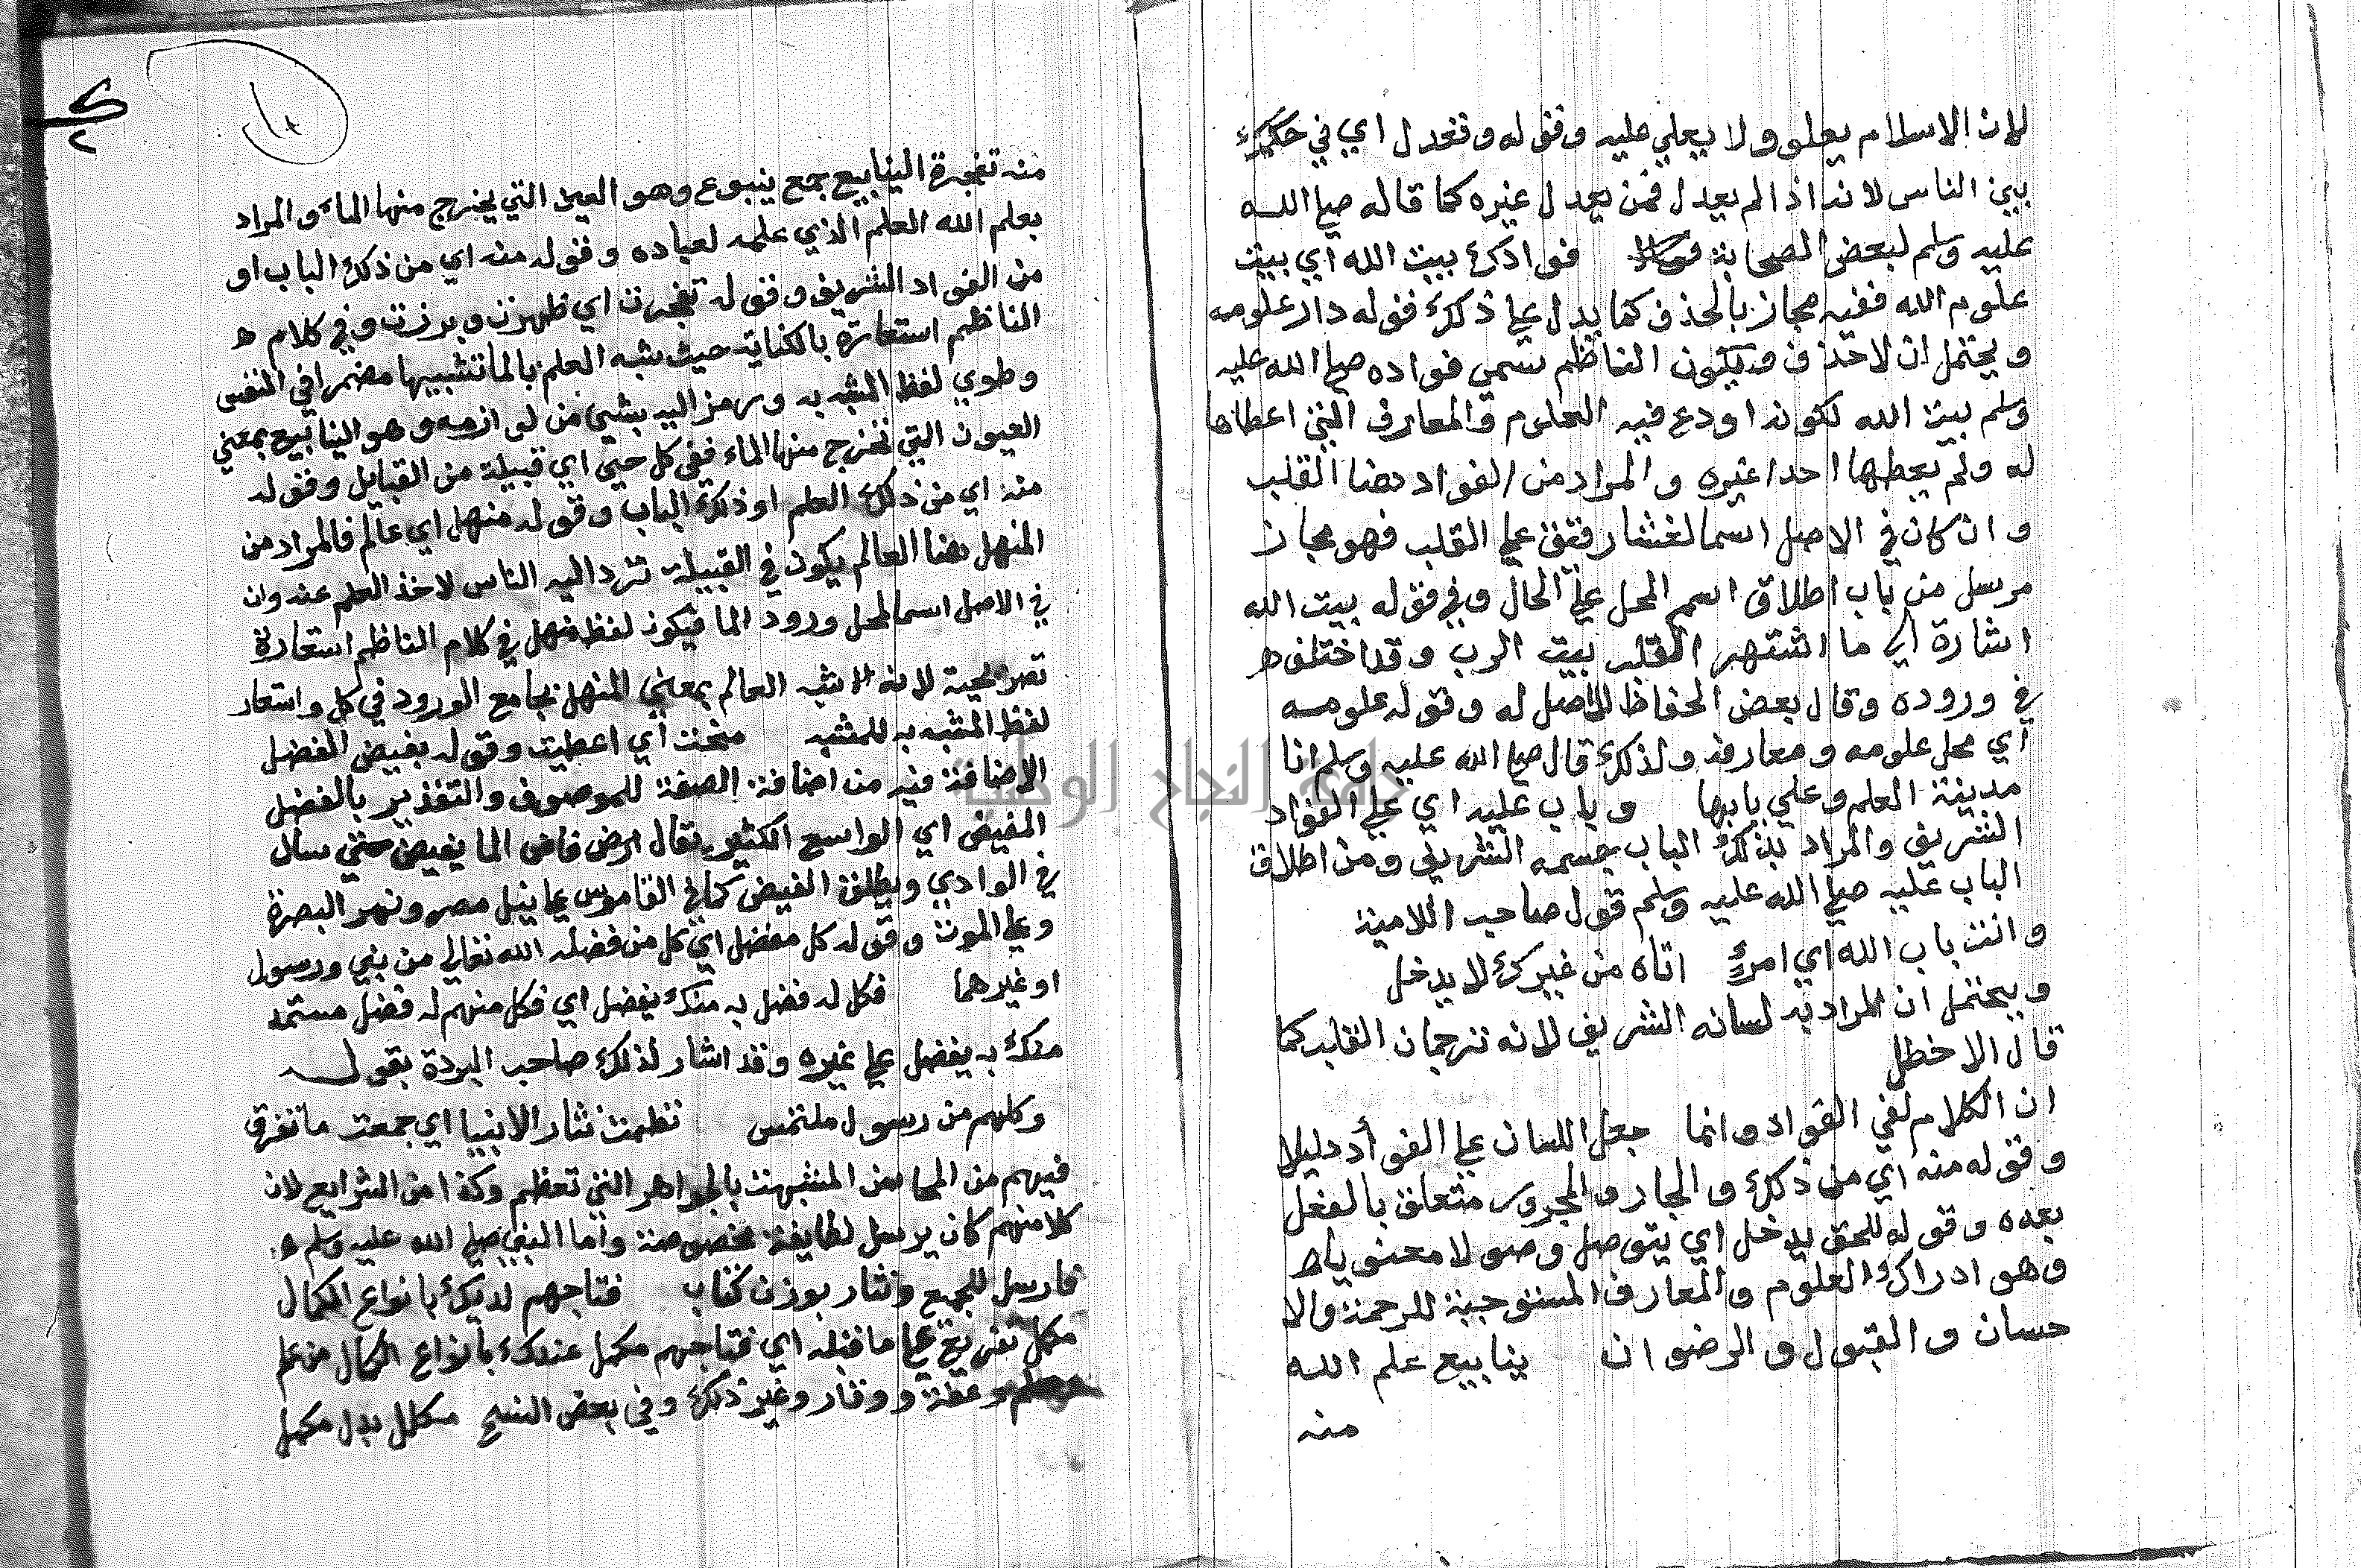 لان الاسلام يعلو ولا يعلي عليه وقوله وتعدل اي في حكمك
بين الناس لانه اذا لم يعدل فمن يعدل غيره كما قاله صلي الله
عليه وسلم لبعض الصحابة فوادك بيت الله اي بيت
علوم الله ففيه مجاز بالحذف كما يدل علي ذلك قوله دار علومه
ويحتمل ان لا حذف ويكون الناظم سمي فواده صلي الله عليه
وسلم بيت الله لكونه اودع فيه العلوم والمعارف التي اعطاها
له ولم يعطها احدا غيره والمراد من الفواد هنا القلب
وان كان في الاصل اسما لغشار قيق علي القلب فهو مجاز
مرسل من باب اطلاق اسم المحل علي الحال وفي قوله بيت الله
اشارة الي ما اشتهر القلب بيت الرب وقد اختلف
في وروده وقال بعض الحفاظ لا اصل له وقوله علومه
اي محل علومه ومعارفه ولذلك قال صلي الله عليه وسلم انا
مدينة العلم وعلي بابها وباب عليه اي علي الفواد
الشريف والمراد بذلك الباب جسمه الشريف ومن اطلاق
الباب عليه صلي الله عليه وسلم قول صاحب اللامية
وانت باب الله اي امرئ اتاه من غيرك لا يدخل
ويحتمل ان المراد به لسانه الشريف لانه ترجمان القلب كما
قال الاخطل
ان الكلام لفي الفواد وانما جعل اللسان علي الفوأد دليلا
وقوله منه اي من ذلك والجار والمجرور متعلق بالفعل
بعده وقوله للحق يدخل اي يتوصل وصولا معنويا
وهو ادراك العلوم والمعارف المستوجبة للرحمة والا
حسان والقبول والرضوان ينابيع علم الله
منه
منه تفجرة الينابيع جمع ينبوع وهو العين التي يخرج منها الماء والمراد
بعلم الله العلم الذي علمه لعباده وقوله منه اي من ذلك الباب او
من الفواد الشريف وقوله تفجرت اي ظهرت وبرزت وفي كلام
الناظم استعارة بالكناية حيث شبه العلم بالما تشبيها مضمرا في النفس
وطوي لفظ المشبه به ورمز اليه بشي من لوازمه وهو الينابيع بمعني
العيون التي تخرج منها الماء ففي كل حي اي قبيلة من القبايل وقوله
منه اي من ذلك العلم او ذلك الباب وقوله منهل اي عالم فالمراد من
المنهل هنا العالم يكون في القبيلة ترد اليه الناس لاخذ العلم عنه وان
في الاصل اسما لمحل ورود الما فيكون لفظ منهل في كلام الناظم استعارة
تصريحية لانه شبه العالم بمعني المنهل بجامع الورود في كل واستعار
لفظ المشبه به للمشبه منحت اي اعطيت وقوله بفيض الفضل
الاضافة فيه من اضافة الصفة للموصوف والتقدير بالفضل
المفيض اي الواسع الكثير يقال ارض فاض الما يفيض حتي سال
في الوادي ويطلق الفيض كما في القاموس علي نيل مصر ونهر البصرة
وعلي الموت وقوله كل مفضل اي كل من فضله الله تعالي من نبي ورسول
او غيرهما فكل له فضل به منك يفضل اي فكل منهم له فضل مستمد
منك به يفضل علي غيره وقد اشار لذلك صاحب البردة بقوله
وكلهم من رسول ملتمس نظمت نثار الانبيا اي جمعت ما تفرق
فيهم من المحاسن المشبهت بالجواهر التي تعظم وكذا من الشرايع لان
كلا منهم كان يرسل لطايفة مخصوصة واما النبي صلي الله عليه وسلم
فارسل للجميع ونثار بوزن كتاب فتاجهم لديك بانواع الكمال
مكمل تفريع علي ما قبله اي فتاجهم مكمل عندك بانواع الكمال من علم
وعفة ووقار وغير ذلك وفي بعض النسخ مكلل بدل مكمل
جامعة النجاح الوطنية